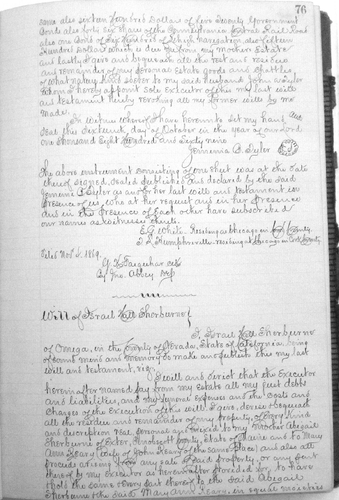 76
some also sixteen hundred Dollars of five Twenty Government
Bonds also forty six Share of the Pennsylvania Central Rail Road
also one Bond of
hundred Dollars which is due me from my Mothers Estate
and lastly I give and bequeath all the rest and residue
and remainder of my personal Estate goods and chattles
of what nature kind soever to my said husband John
whom I hereby appoint sole Executor of this my last will
and testament hereby revoking all my former wills by me
made.
In witness whereof I have hereunto set my hand and
seal this sixteenth day of October in the year of our Lord
one thousand eight hundred and sixty nine
The above instrument consisting of one sheet was at the date
thereof signed, sealed published and declared by the said
as and for her last will and testament in
presence of us, who at her request and in her presence
and in the presence of each other have subscribed
our names as witnesses thereto.
E.G. White. Residing at Chicago in Cook County
residing at Chicago in Cook County
Filed Nov 5. 1869.
G. W. Farquhar clk
By Jno. Abbey
Will of Israel Hill Sherburne
I, Israel Hill Sherburne
of Omega, in the County of Nevada, State of California, being
of sound mind and memory do make and publish this my last
will and testament, viz:
I will and direct that the Executor
hereinafter named pay from my Estate all my just debts
and liabilities, and my funeral expenses and the costs and
charges of the execution of this will. I give, devise & bequeath
all the residue and remainder of my property, of every kind
and description real personal and mixed to my Mother Abigail
Sherburne of Exter, Penobscot County, State of Maine and to Mary
Ann Leary (wife of John Leary of the same place) and also all
proceeds arising from any sale of said property, or any part
thereof by my Executor as hereinafter provided for, to have
& hold the same & every part thereof to the said Abigail
Sherburne & the said Mary Ann Leary in equal moieties